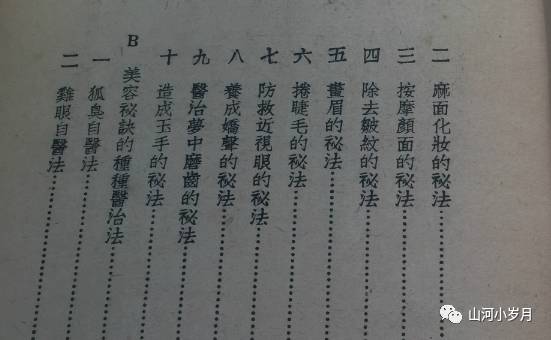 二 麻面化妝的祕法
三 按摩顏面的祕法
四 除去皺紋的祕法
五 畫眉的祕法
六 捲睫毛的祕法
七 防救近視眼的祕法
八 養成嬌聲的祕法
九 醫治夢中磨齒的祕法
十 造成玉手的祕法
B 美容祕訣的種種醫治法
一 狐臭自醫法
二 雞眼自醫法
山河小岁月